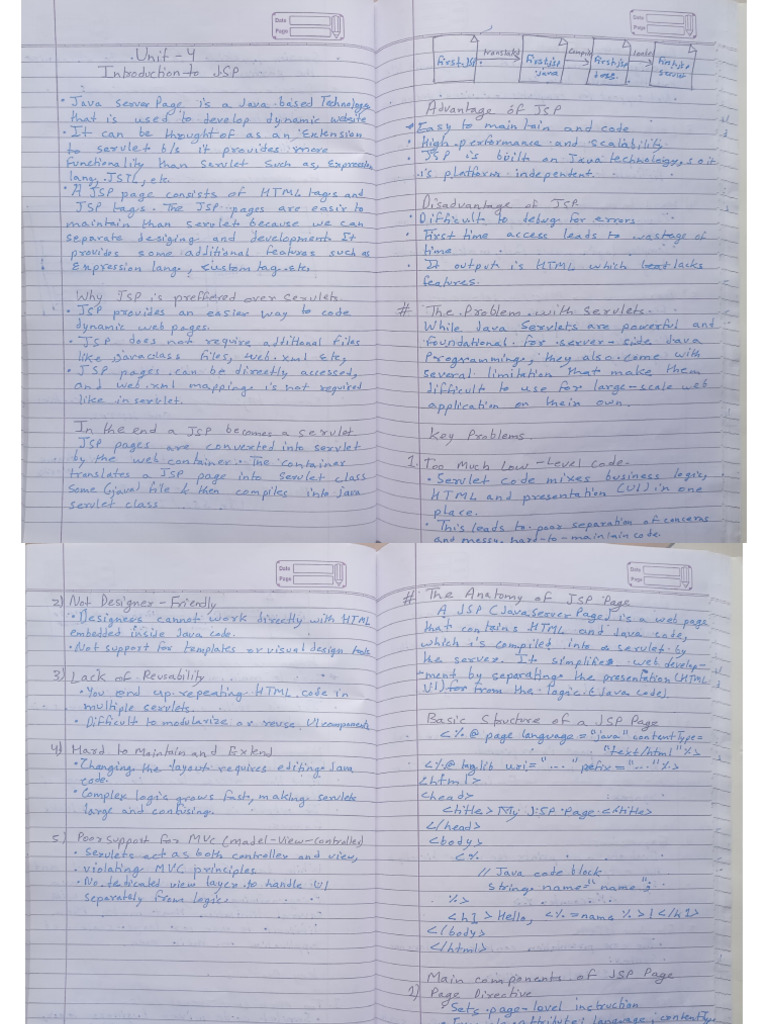 Date
Page
Unit - 4
Introduction to JSP
• Java ServerPage is a Java-based Technology
that is used to develop dynamic website
• It can be thought of as an Extension
to servlet b/s it provides more
functionality than servlet such as, Expression
lang, JSTL, etc.
• A JSP page consists of HTML tags and
JSP tags. The JSP pages are easier to
maintain than servlet because we can
separate desiging and development. It
provides some additional features such as
Expression lang, custom tag etc.
Why JSP is preffered over servlets.
• JSP provides an easier way to code
dynamic web pages.
• JSP does not require additional files
like java class files, web.xml etc,
• JSP pages can be directly accessed,
and web.xml mapping is not required
like in servlet.
In the end a JSP becomes a servlet
JSP pages are converted into servlet
by the web container. The container
translates a JSP page into servlet class
Some (java) file & then compiles into java
servlet class
Date
Page
translate compile loads
java
Advantage of JSP
• Easy to maintain and code
• High performance and scalability
• JSP is built on Java technology, so it
is platform indepentent.
Disadvantage of JSP
• Difficult to debug for errors
• First time access leads to wastage of
time
• It output is HTML which lacks
features.
# The Problem with Servlets.
While Java Servlets are powerful and
foundational for server-side Java
Programming, they also come with
several limitation that make them
difficult to use for large-scale web
application on their own.
Key Problems
1. Too Much Low-Level code.
• Servlet code mixes business logic,
HTML and presentation (UI) in one
place.
• This leads to poor separation of concerns
and messy, hard-to-maintain code.
Date
Page
2) Not Designer-Friendly
• Designers cannot work directly with HTML
embedded inside Java code.
• Not support for templates or visual design tools
3) Lack of Reusability
• You end up repeating HTML code in
multiple servlets.
• Difficult to modularize or reuse UI components
4) Hard to Maintain and Extend
• Changing the layout requires editing Java
code.
• Complex logic grows fast, making servlets
large and confusing.
5) Poor support for MVC (Model-View-Controller)
• Servlets act as both controller and view,
• violating MVC principles
• No dedicated view layer to handle UI
separately from logic.
Date
Page
# The Anatomy of JSP Page
A JSP (JavaServer Page) is a web page
that contains HTML and Java code,
which is compiled into a servlet by
the server. It simplifies web develop-
ment by separating the presentation (HTML
UI) for from the logic (Java code)
Basic Structure of a JSP Page
<%@ page language="java" contentType=
"text/html"%>
<%@ taglib uri="..." prefix="..."%>
<html>
<head>
<title> My JSP Page <title>
</head>
<body>
<%
// Java code block
String name="name";
%>
<h1> Hello, <%=name %>! </h1>
</body>
</html>
Main components of JSP Page
1) Page Directive
• Sets page-level instruction